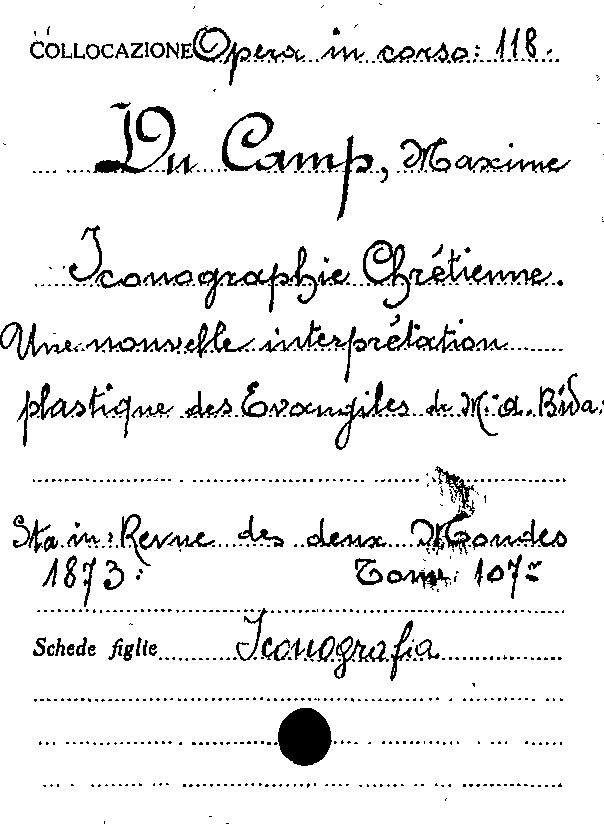 COLLOCAZIONE Opera in corso: 118.
Du Camp, Maxime
Iconographie Chrétienne.
Une nouvelle interprétation
plastique des Evangiles de Mr. A. Bida.
Sta in: Revue des deux Mondes
1873: Tom. 107
Schede figlie Iconografia